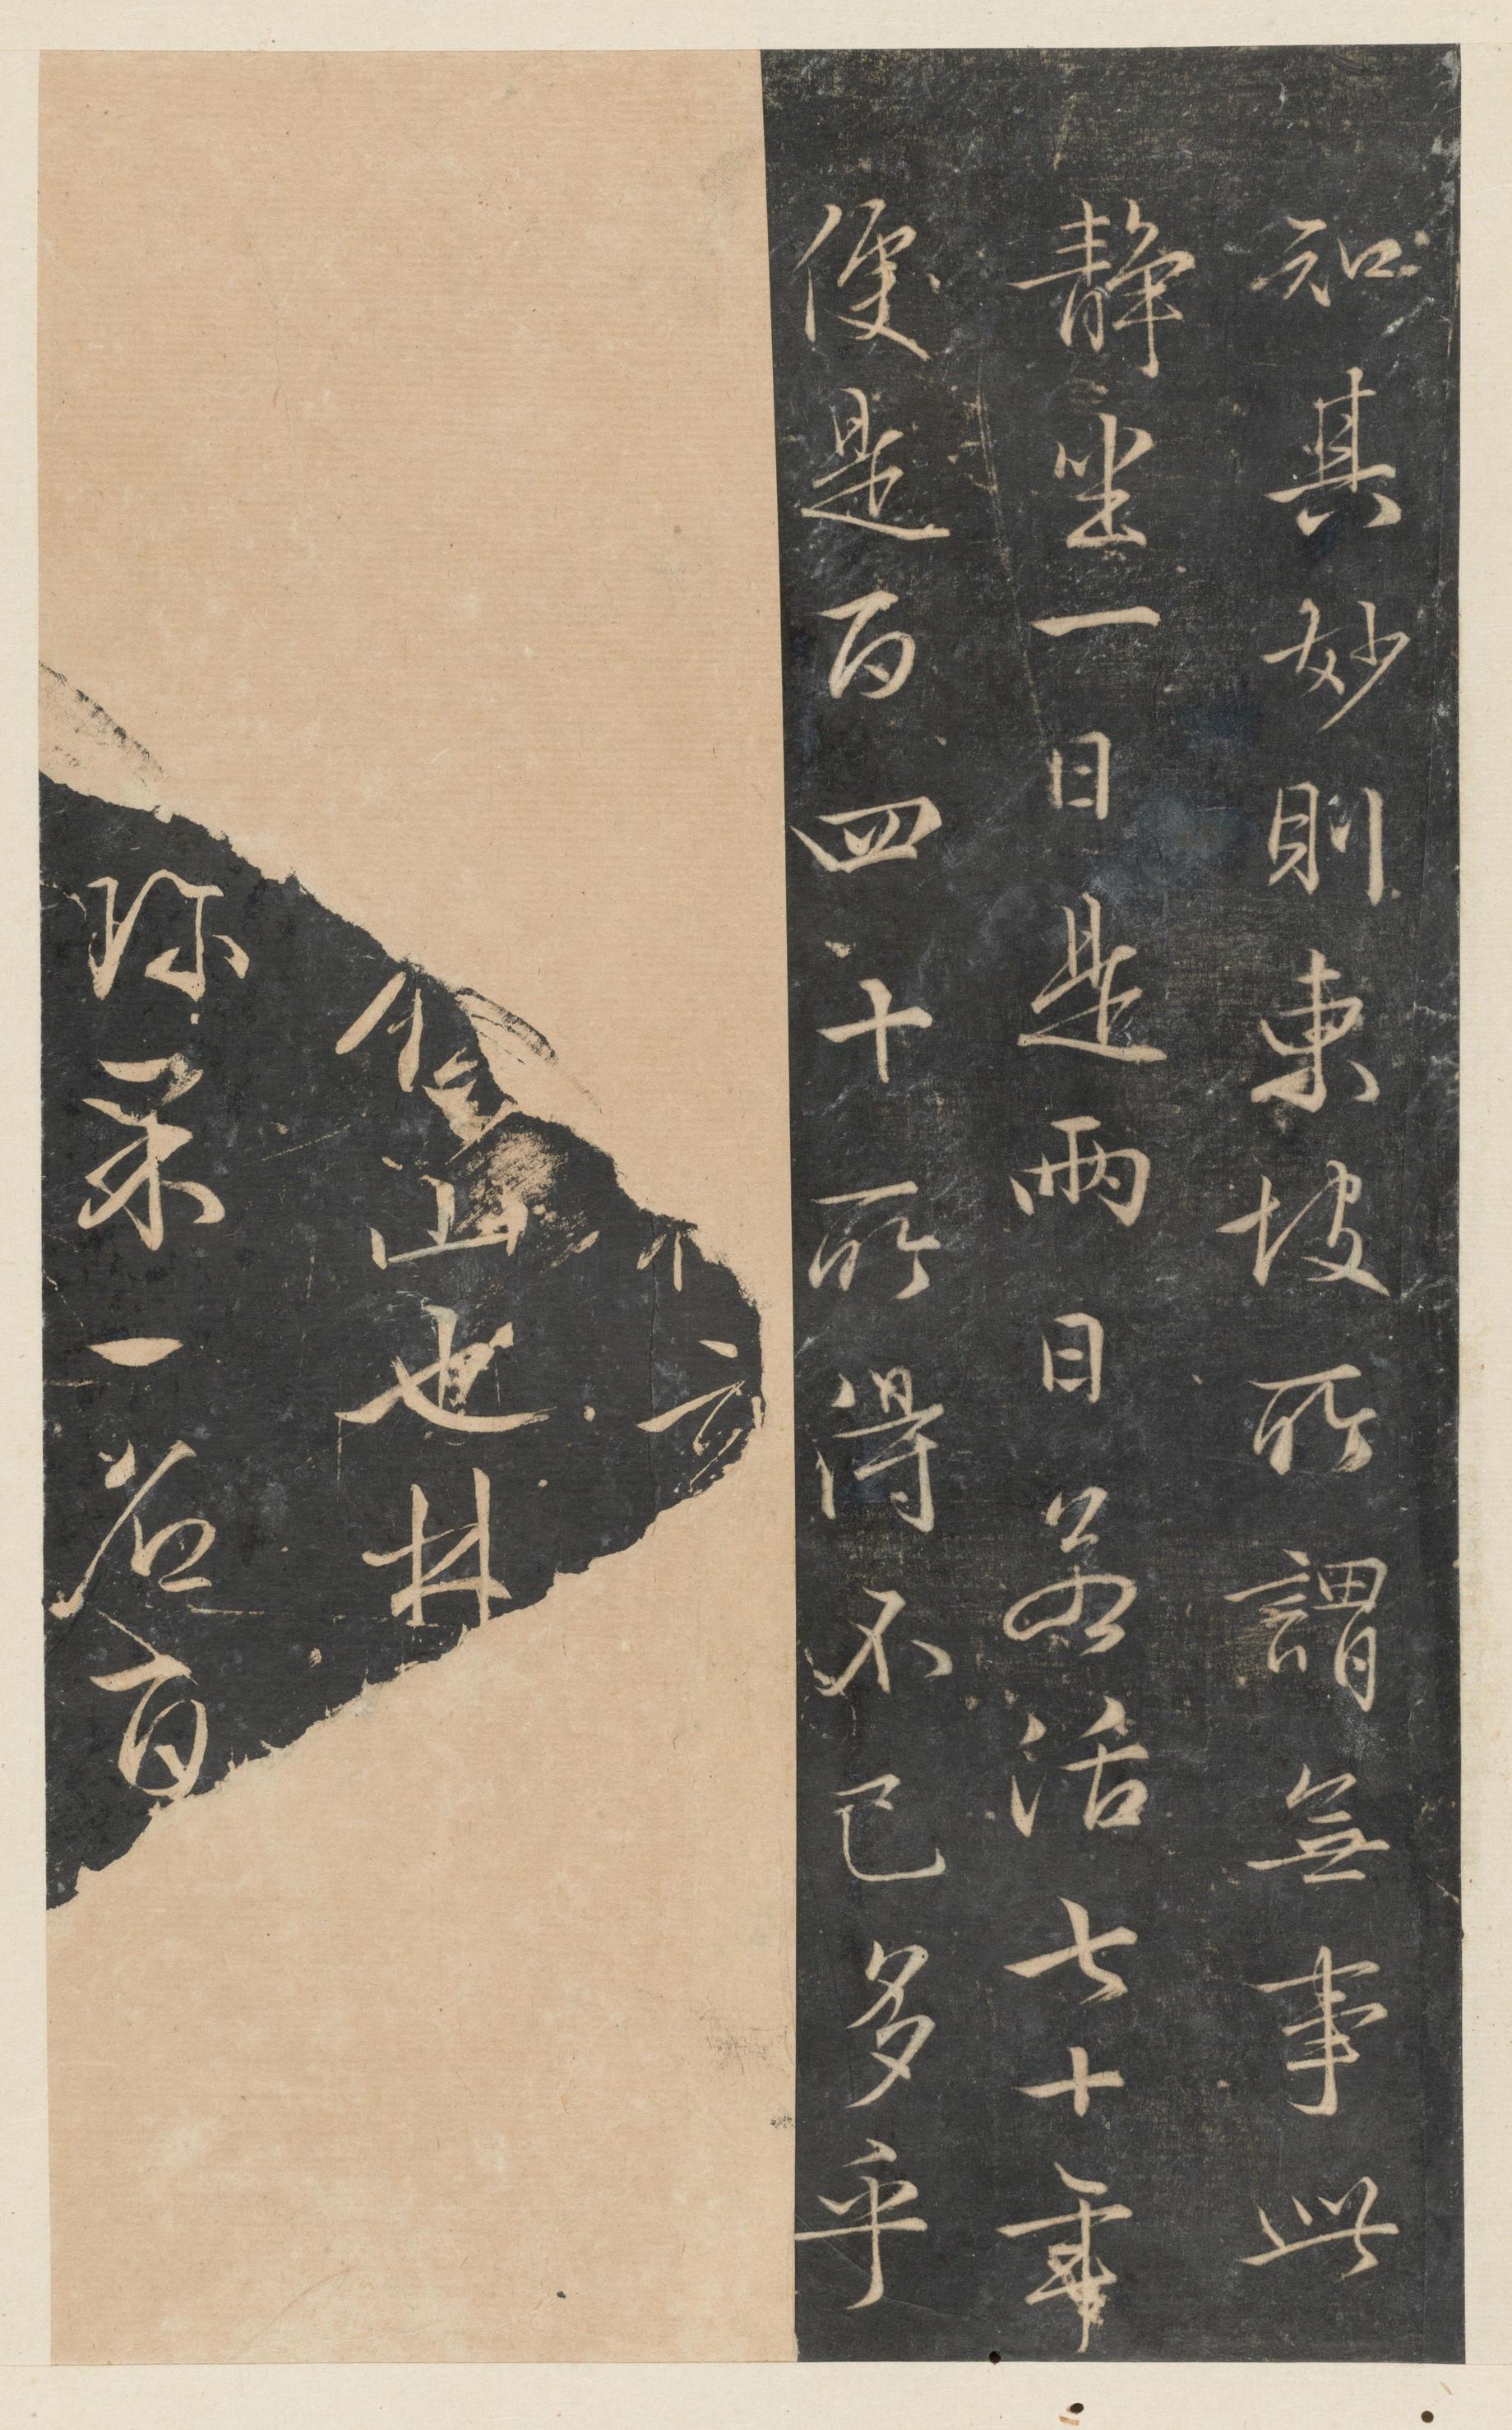 知其妙則東坡所謂無事此
靜坐一日是兩日若活七十年
便是百四十所得不已多乎
山也林
一首